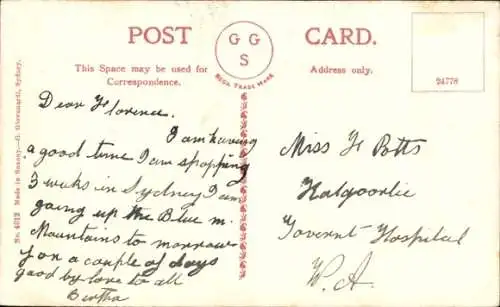 POST CARD.
G G
S
REGD. TRADE MARK
This Space may be used for
Correspondence.
Address only.
24778
No. 4012 Made in Saxony—G. Giovanardi, Sydney.
Dear Florence.
I am having
a good time I am stopping
3 weeks in Sydney I am
going up the Blue m.
Mountains to morrow
for a couple of days
good by love to all
Bertha
Miss F Potts
Kalgoorlie
Governt Hospital
W. A.